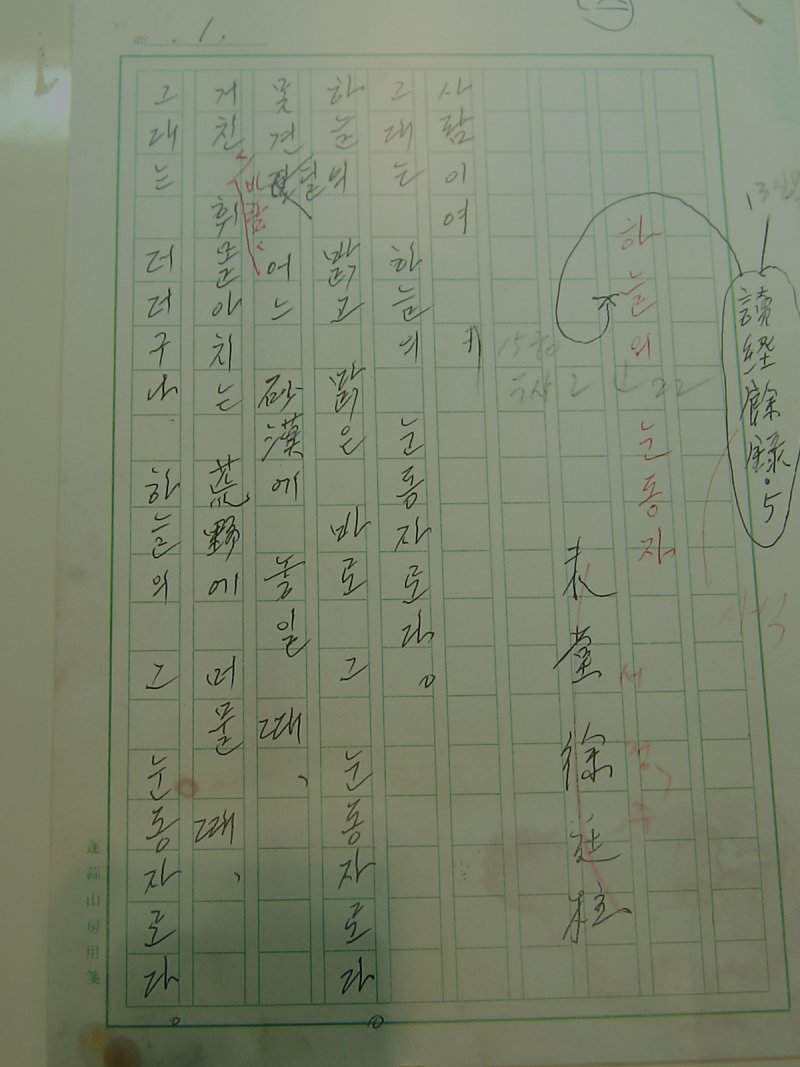 1.
讀経餘錄·5
하늘의 눈동자
서정주
未堂 徐廷柱
사람이여
그대는 하늘의 눈동자로다。
하늘의 밝고 맑은 바로 그 눈동자로다。
못견딜 어느 砂漠에 놓일 때、
거친 바람 휘몰아치는 荒野에 머물 때、
그대는 더더구나 하늘의 그 눈동자로다。
蓬蒜山房用箋